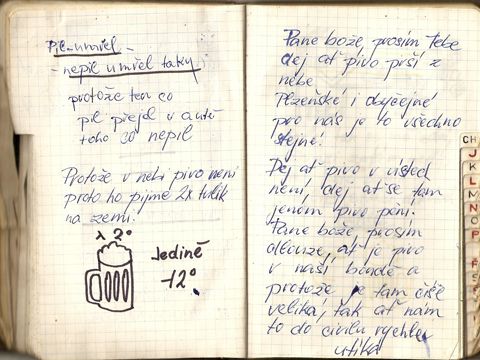 Pil-umřel-
- nepil umřel taky
protože ten co
pil přejel v autě
toho co nepil
Protože v nebi pivo není
proto ho pijme 2x tolik
na zemi!
Jedině
12°
Pane bože, prosím tebe
dej ať pivo prší z
nebe
Plzeňské i obyčejné
pro nás je to všechno
stejné!
Dej ať pivo v
není, dej ať se tam
jenom pivo pění!
Pane bože, prosím
ať je pivo
v naší bandě a
protože je tam číše
veliká, tak ať nám
to do civilu rychle
utíká
CH
J
K
L
M
N
O
P
Ř
S